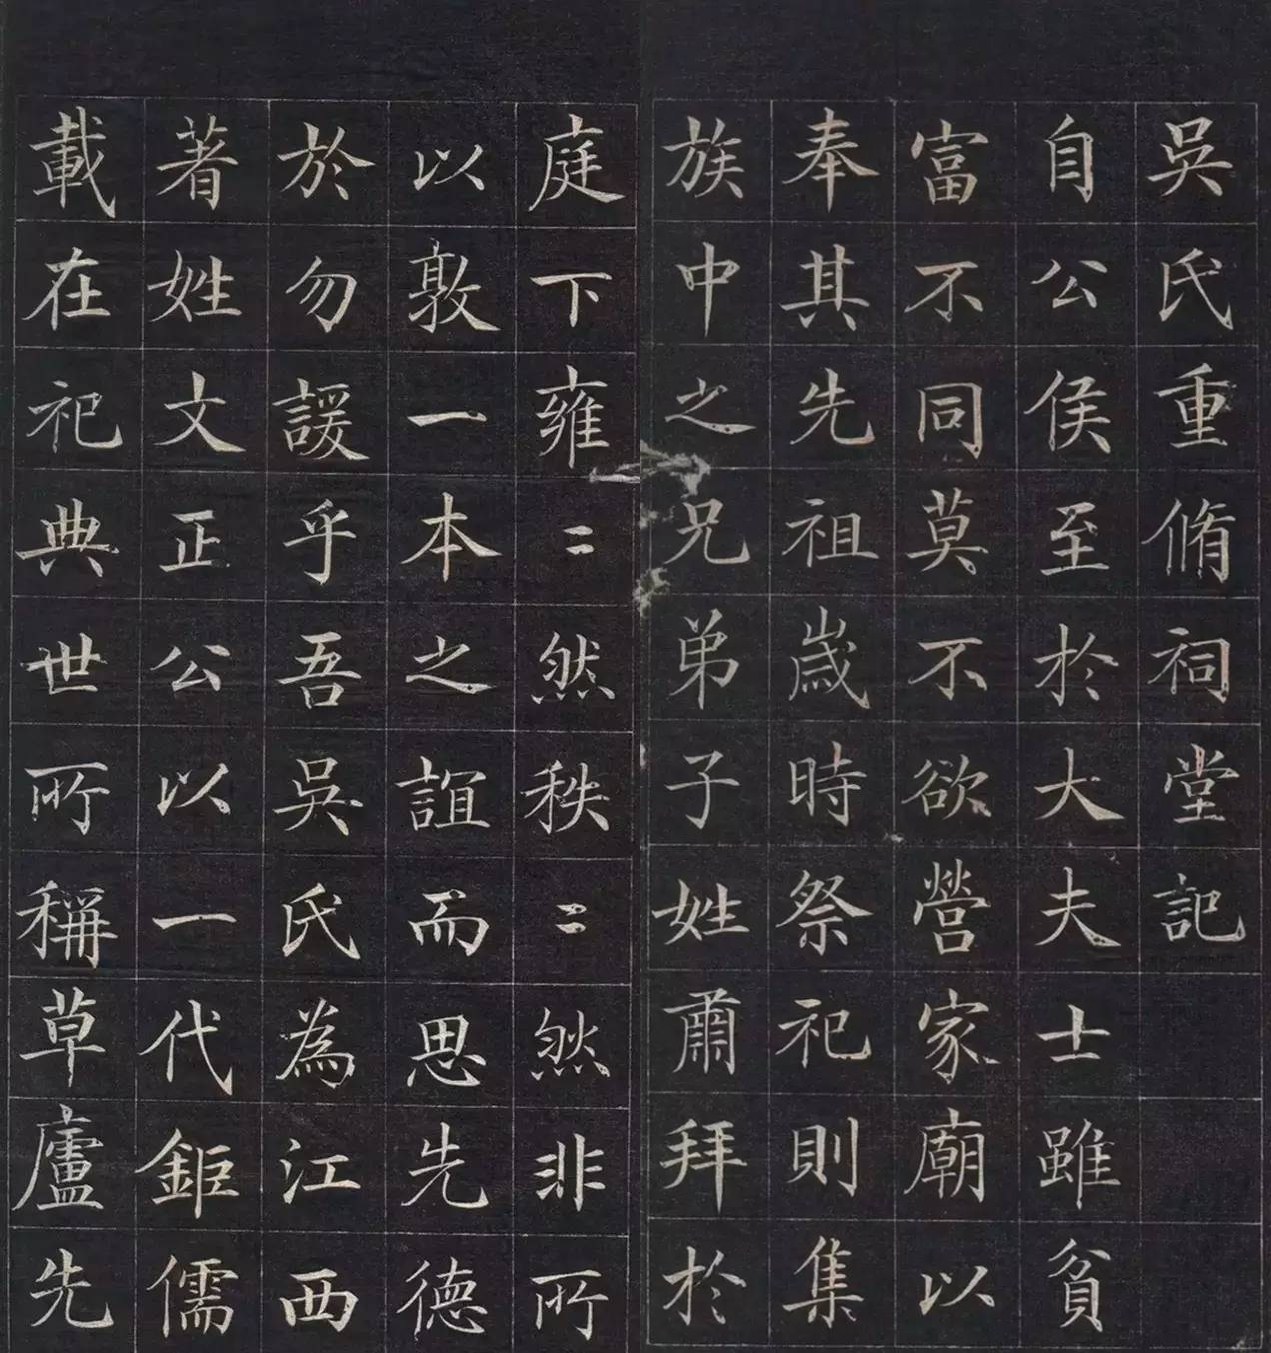 吳氏重脩祠堂記
自公侯至於大夫士雖貧
富不同莫不欲營家廟以
奉其先祖歲時祭祀則集
族中之兄弟子姓肅拜於
庭下雍〻然秩〻然非所
以敦一本之誼而思先德
於勿諼乎吾吳氏為江西
著姓文正公以一代鉅儒
載在祀典世所稱草廬先